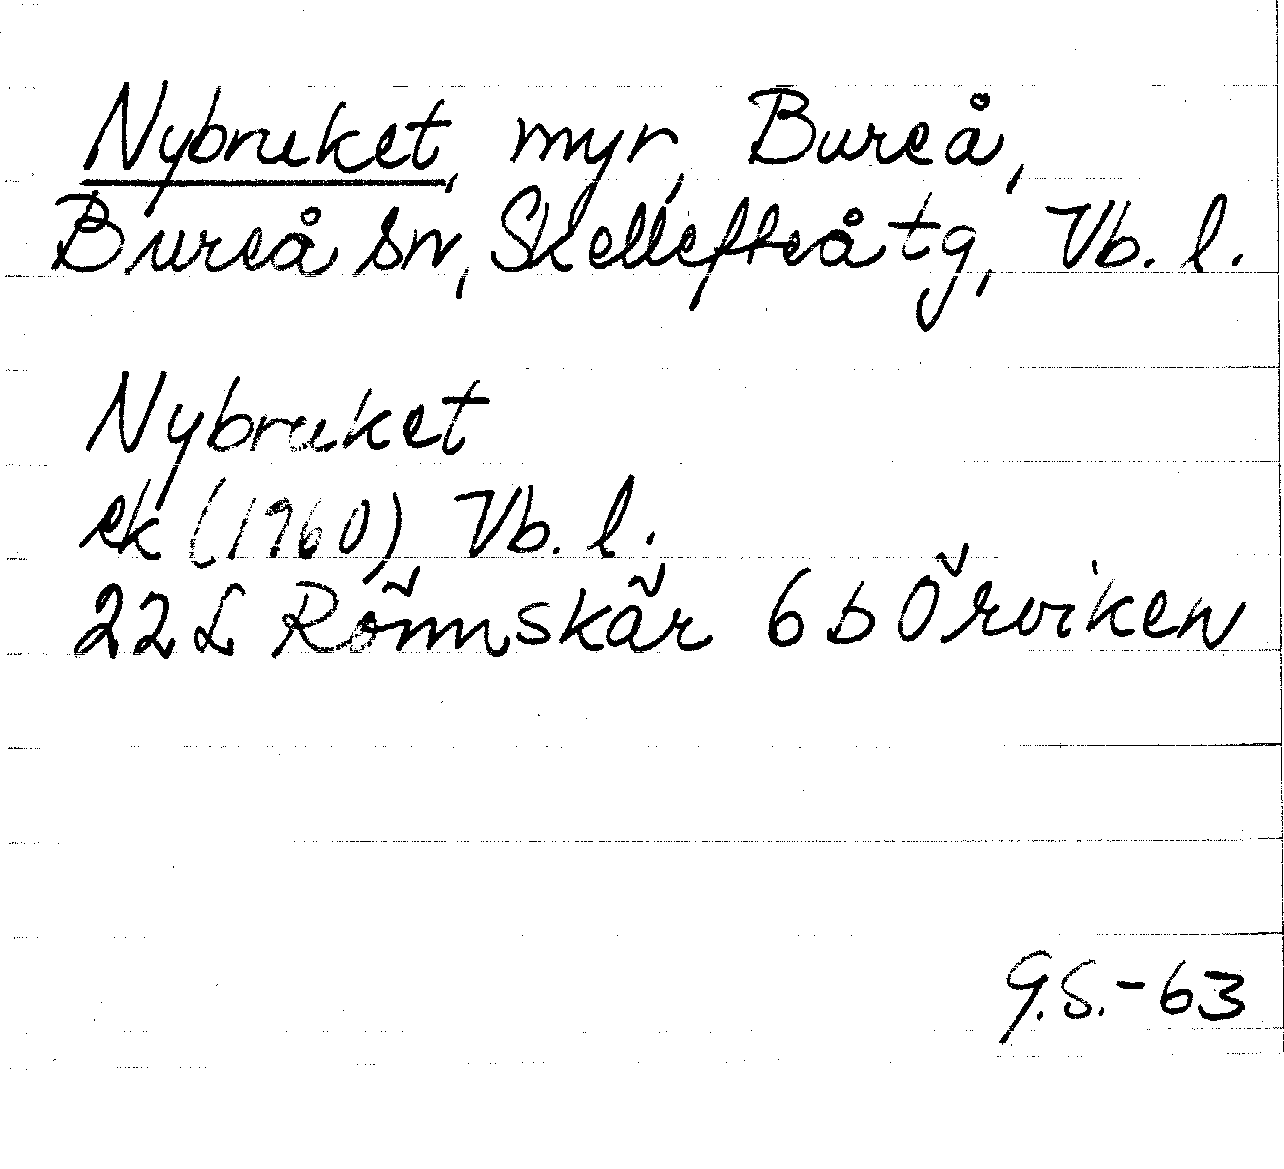 Nybruket, myr, Bureå,
Bureå sn, Skellefteå tg, Vb. l.
Nybruket
ek (1960) Vb. l.
22 L Rönnskär 6 b Örviken
G.S.-63